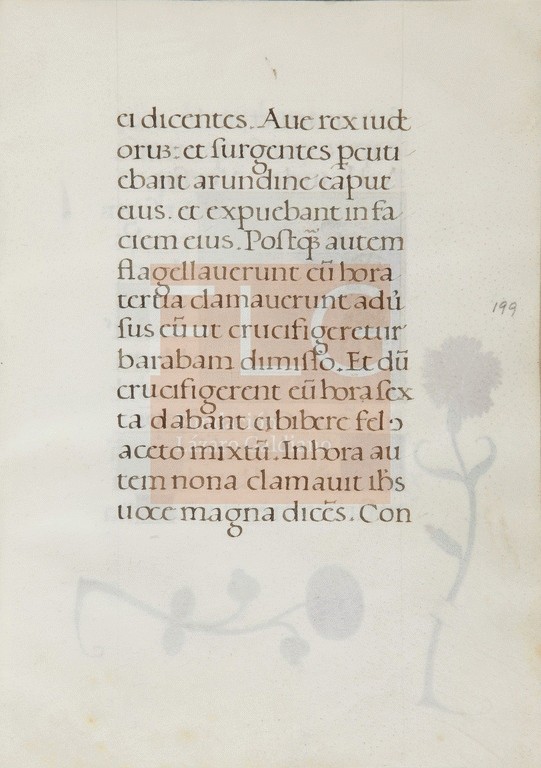 ei dicentes. Aue rex iudę
oruꝫ: et surgentes ꝑcuti
ebant arundine caput
eius. et expuebant in fa
ciem eius. Postq̃ autem
flagellauerunt cū hora
tertia clamauerunt adũ
sus eū ut crucifigeretur
barabam dimisso. Et dū
crucifigerent eū hora sex
ta dabant ei bibere fel ↄ
aceto mixtū. In hora au
tem nona clamauit ihs̄
uoce magna dicēs. Con
199
FLG
Lázaro Galdiano